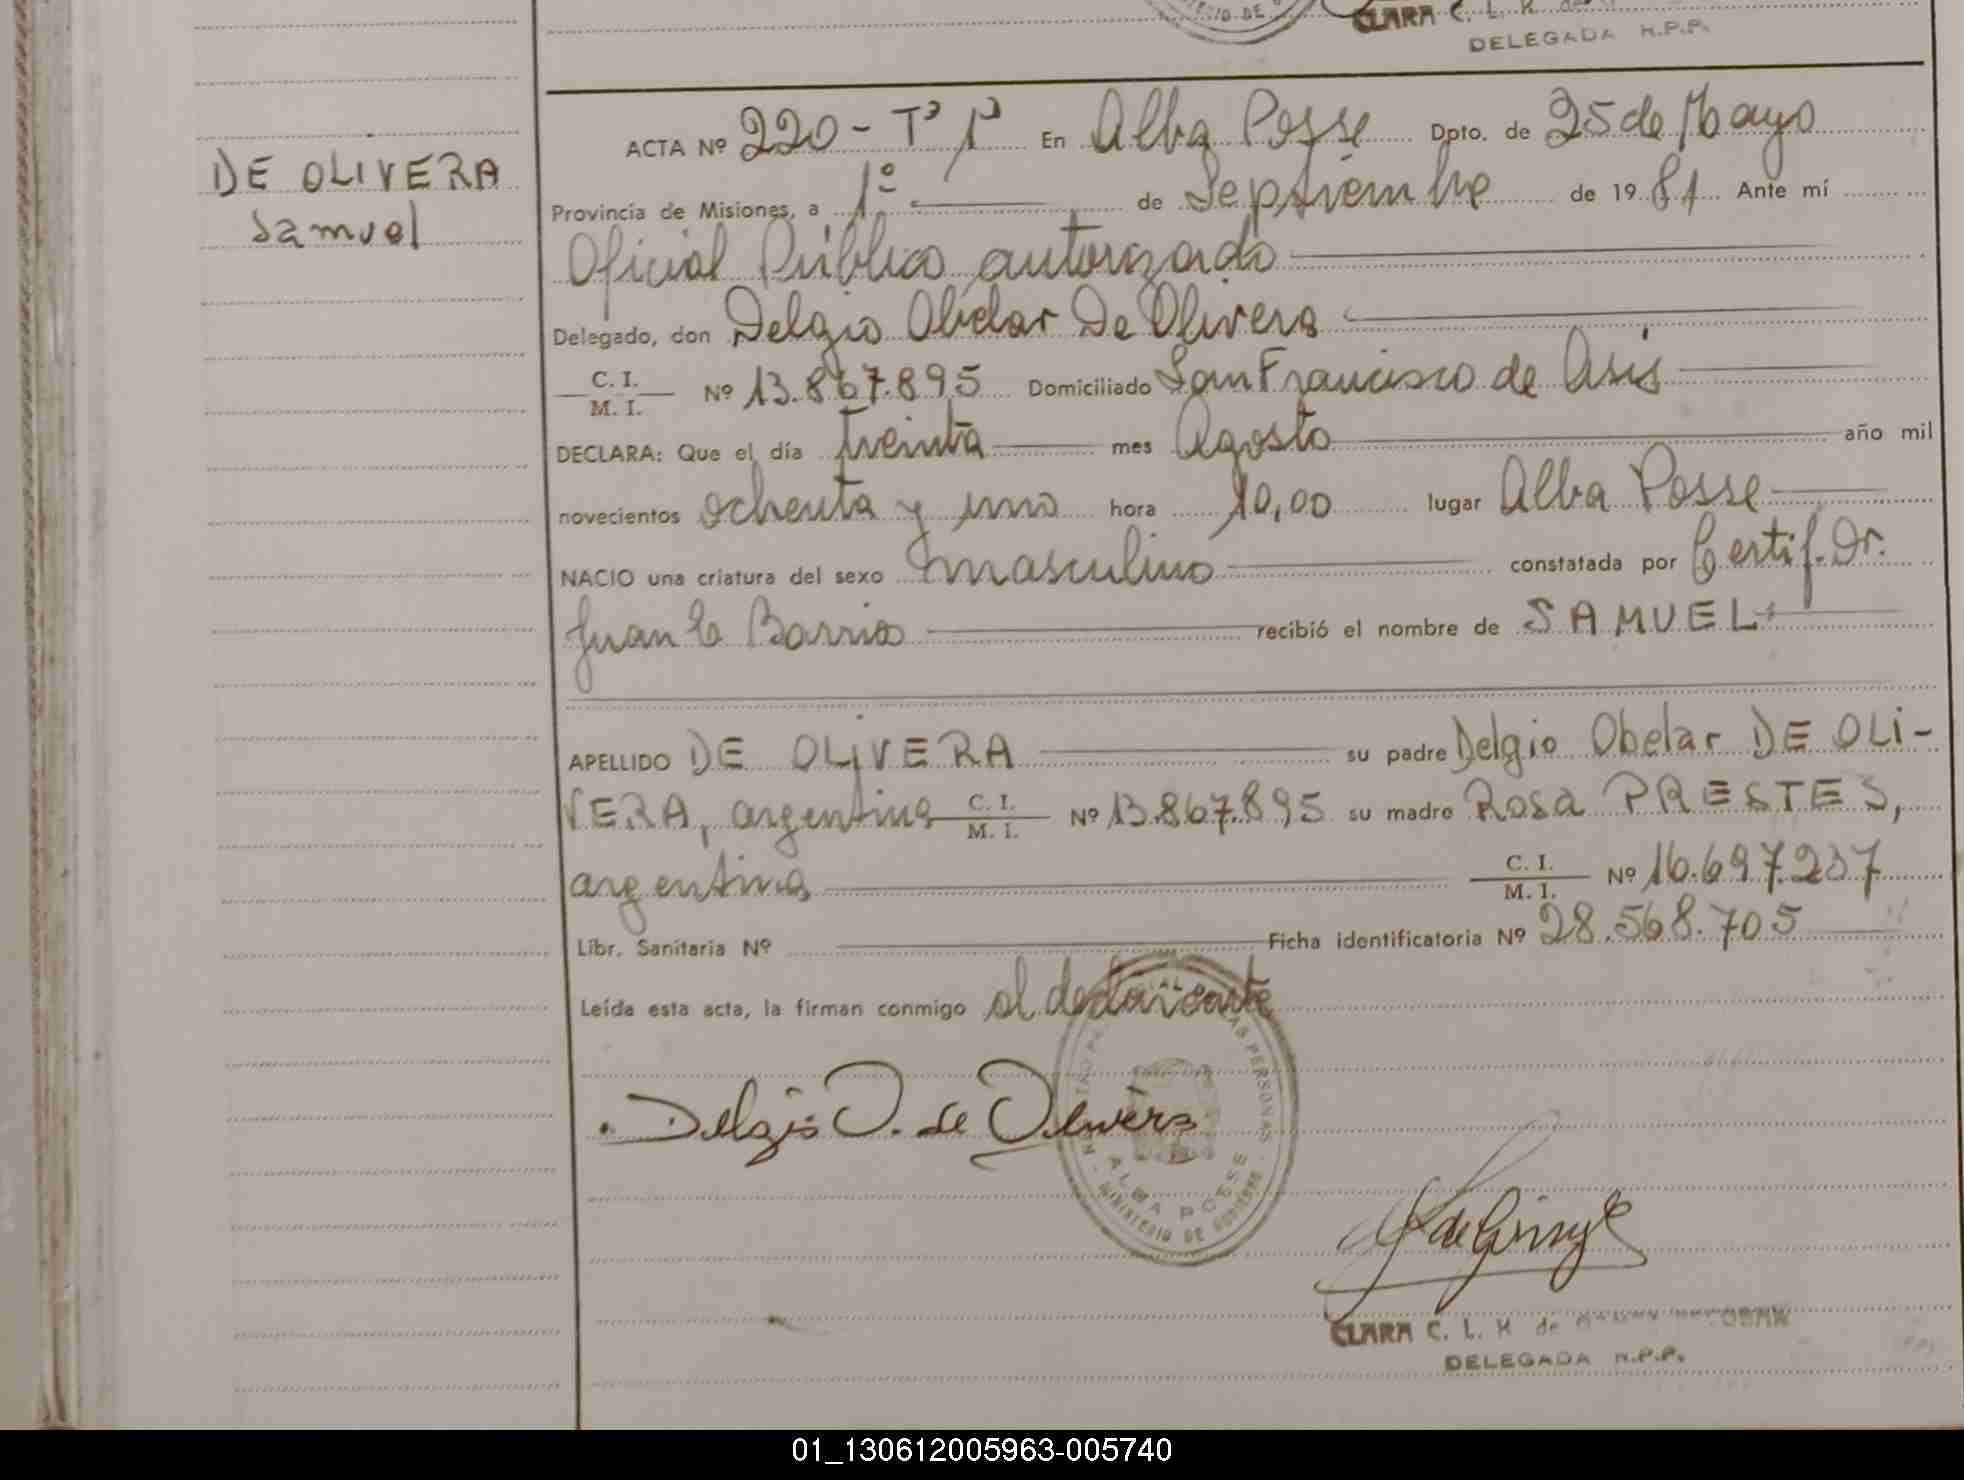 CLARA C. L. K de
DELEGADA R.P.P.
DE OLIVERA
Samuel
ACTA Nº 220 - Tº 1º En Alba Posse Dpto. de 25 de Mayo
Provincia de Misiones, a 1º de Septiembre de 1981 Ante mí
Oficial Público autorizado
Delegado, don Delgio Obelar De Olivera
C. I.
M. I.
Nº 13.867.895 Domiciliado San Francisco de Asis
DECLARA: Que el día treinta mes Agosto año mil
novecientos ochenta y uno hora 10,00 lugar Alba Posse
NACIO una criatura del sexo masculino constatada por Certif. Dr.
Juan C Barrios recibió el nombre de SAMUEL
APELLIDO DE OLIVERA su padre Delgio Obelar DE OLI-
VERA, argentino C. I. M. I. Nº 13.867.895 su madre Rosa PRESTES,
argentina C. I. M. I. Nº 16.697.237
Libr. Sanitaria Nº Ficha identificatoria Nº 28.568.705
Leída esta acta, la firman conmigo el declarante
Delgio O. de Olivera
ALBA POSSE
MINISTERIO DE GOBIERNO
CLARA C. L. K de
DELEGADA R.P.P.
01_130612005963-005740